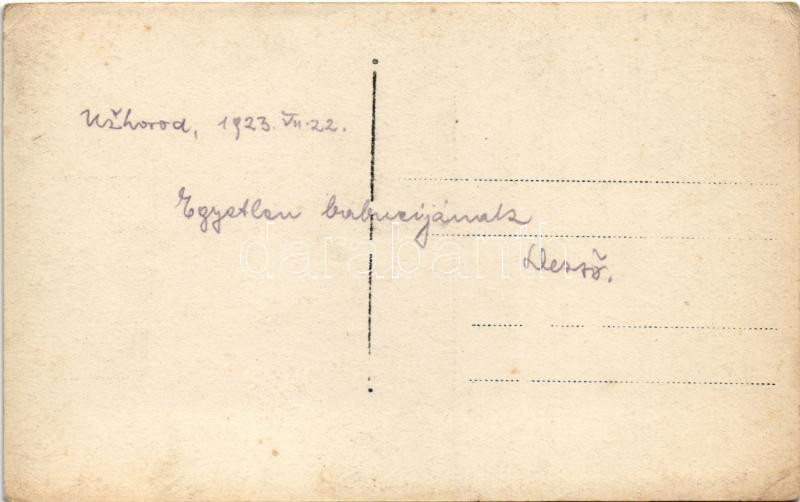 Užhorod, 1923. VII. 22.
Egyetlen babucijának
Dezső.
darabanth